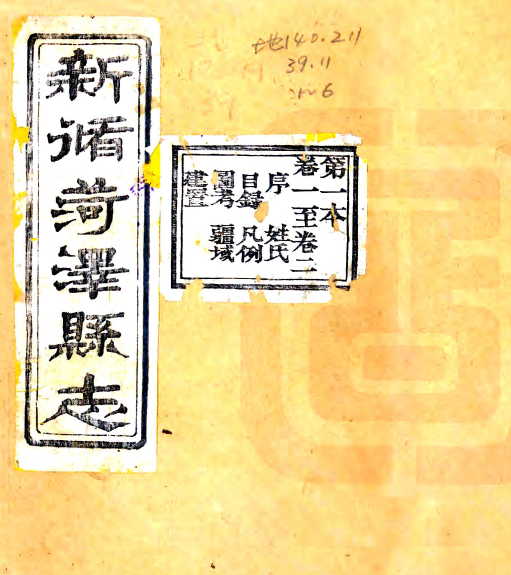 新脩菏澤縣志
第一本
卷一至卷二
序 姓氏
目錄 凡例
圖考 疆域
建置
地140.211
39.11
:1~6